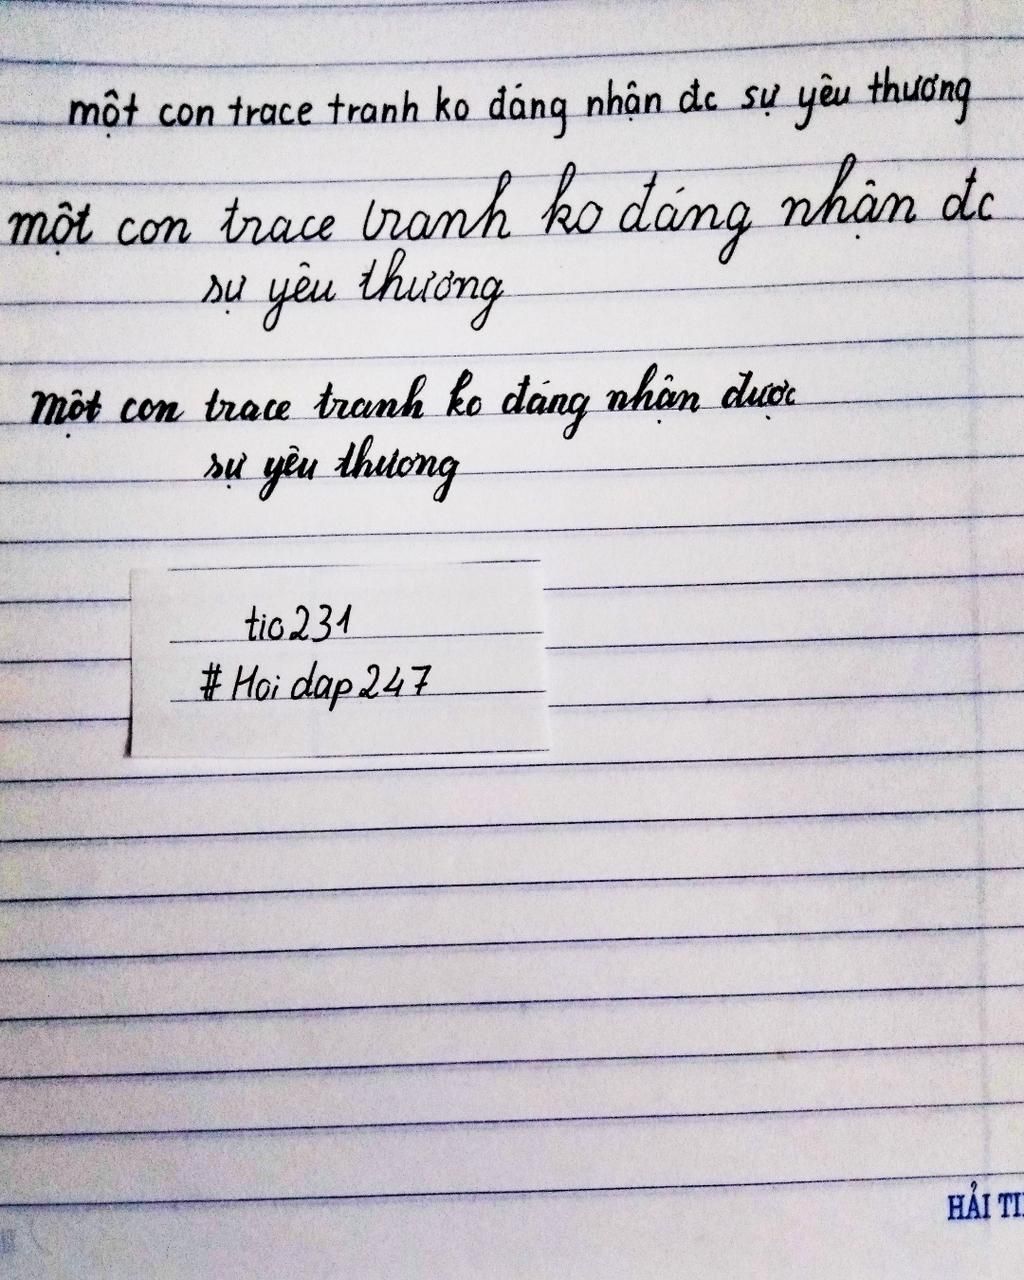 một con trace tranh ko đáng nhận đc sự yêu thương
một con trace tranh ko đáng nhận đc
sự yêu thương
Một con trace tranh ko đáng nhận được
sự yêu thương
tio231
#Hoidap247
HẢI TI